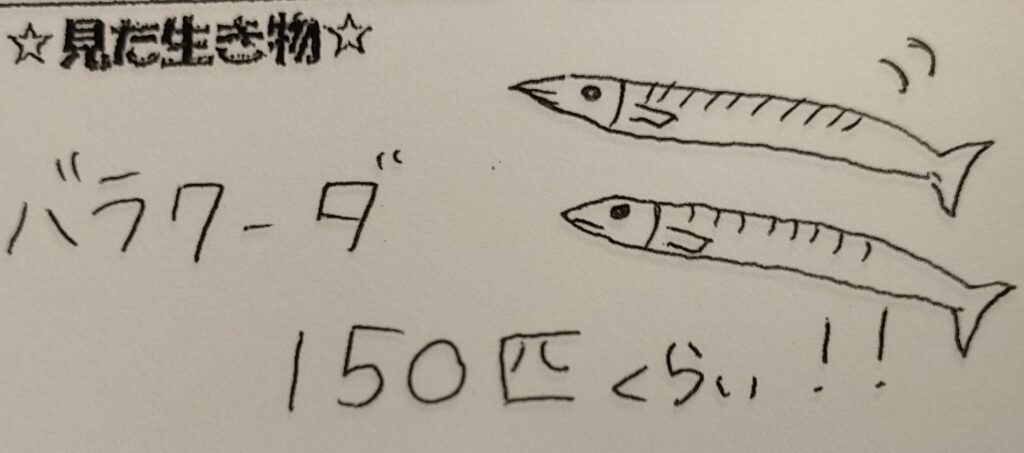 ☆見た生き物☆
バラクーダ
150匹くらい!!